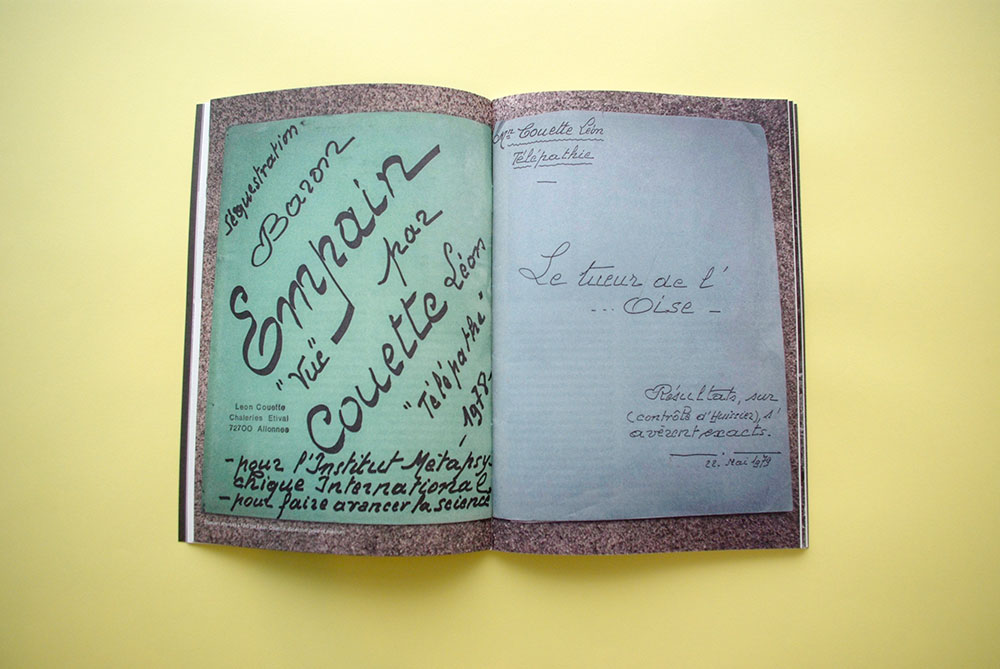 Séquestration
Baron
Empain
"Vüe" par
Couette Léon
"Télépathe"
1978.
Leon Couette
Chaleries Etival
72700 Allonnes
-pour l'Institut Métapsy-
chique International
-pour faire avancer la science
Couette Léon
Télépathie
Le tueur de l'
... Oise _
Résultats, sur
(contrôle d'Huissier), s'
avèrent exacts.
22. Mai 1979